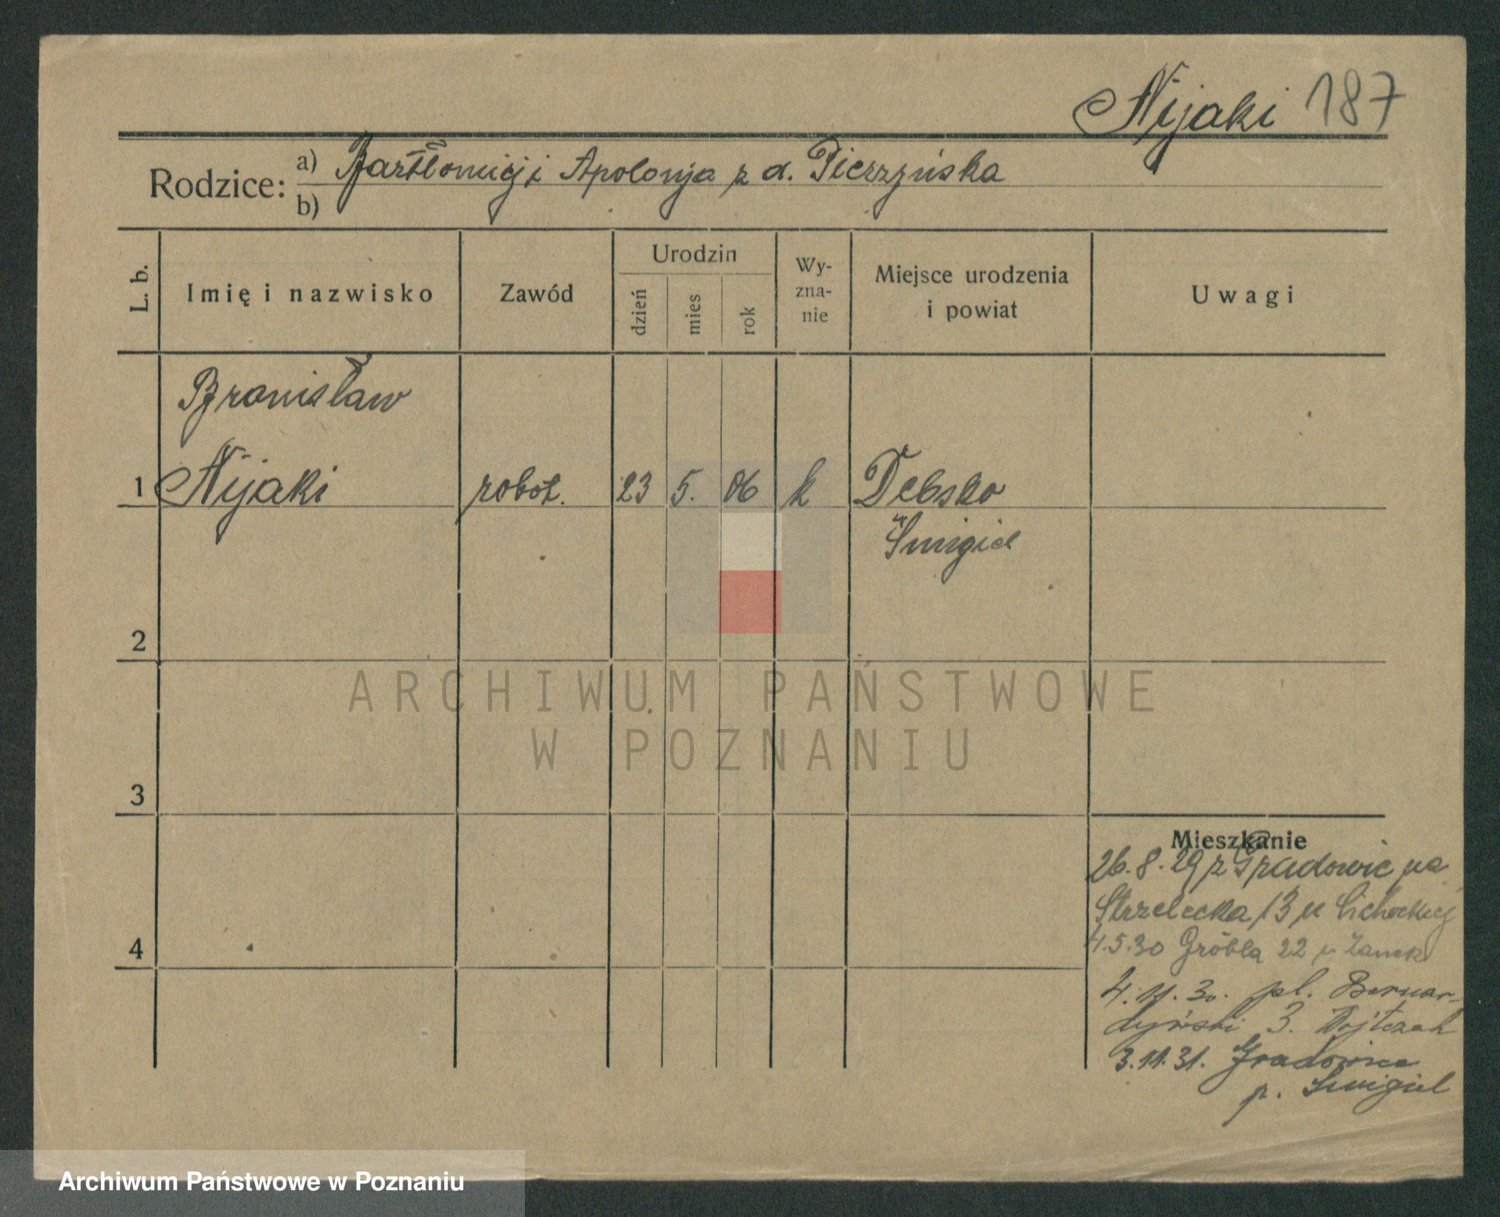 Nijaki 187
Rodzice: a) Bartłomiej i Apolonja z d. Pierzyńska
b)
L. b.
Imię i nazwisko
Zawód
Urodzin
dzień
mies
rok
Wy-
zna-
nie
Miejsce urodzenia
i powiat
Uwagi
Bronisław
1 Nijaki robot. 23 5. 06 k Debsko
Śmigiel
2
ARCHIWUM PAŃSTWOWE
W POZNANIU
3
Mieszkanie
26.8.29 z Gradowic na
Strzelecka 13 u Cichockiej
4
4.5.30 Grobla 22 u
4.11.30. pl. Bernar-
dyński 3. Wojtczak
3.11.31. Gradowice
p. Śmigiel
Archiwum Państwowe w Poznaniu